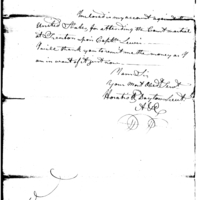 Enclosed is my account against the
United States for attending the Court martial
at Trenton upon Capt. Lewis
I will thank you to remit me the money as I
am in want of it just now
I am Sir
Your most obed. Servt
Horatio R Dayton Lieut